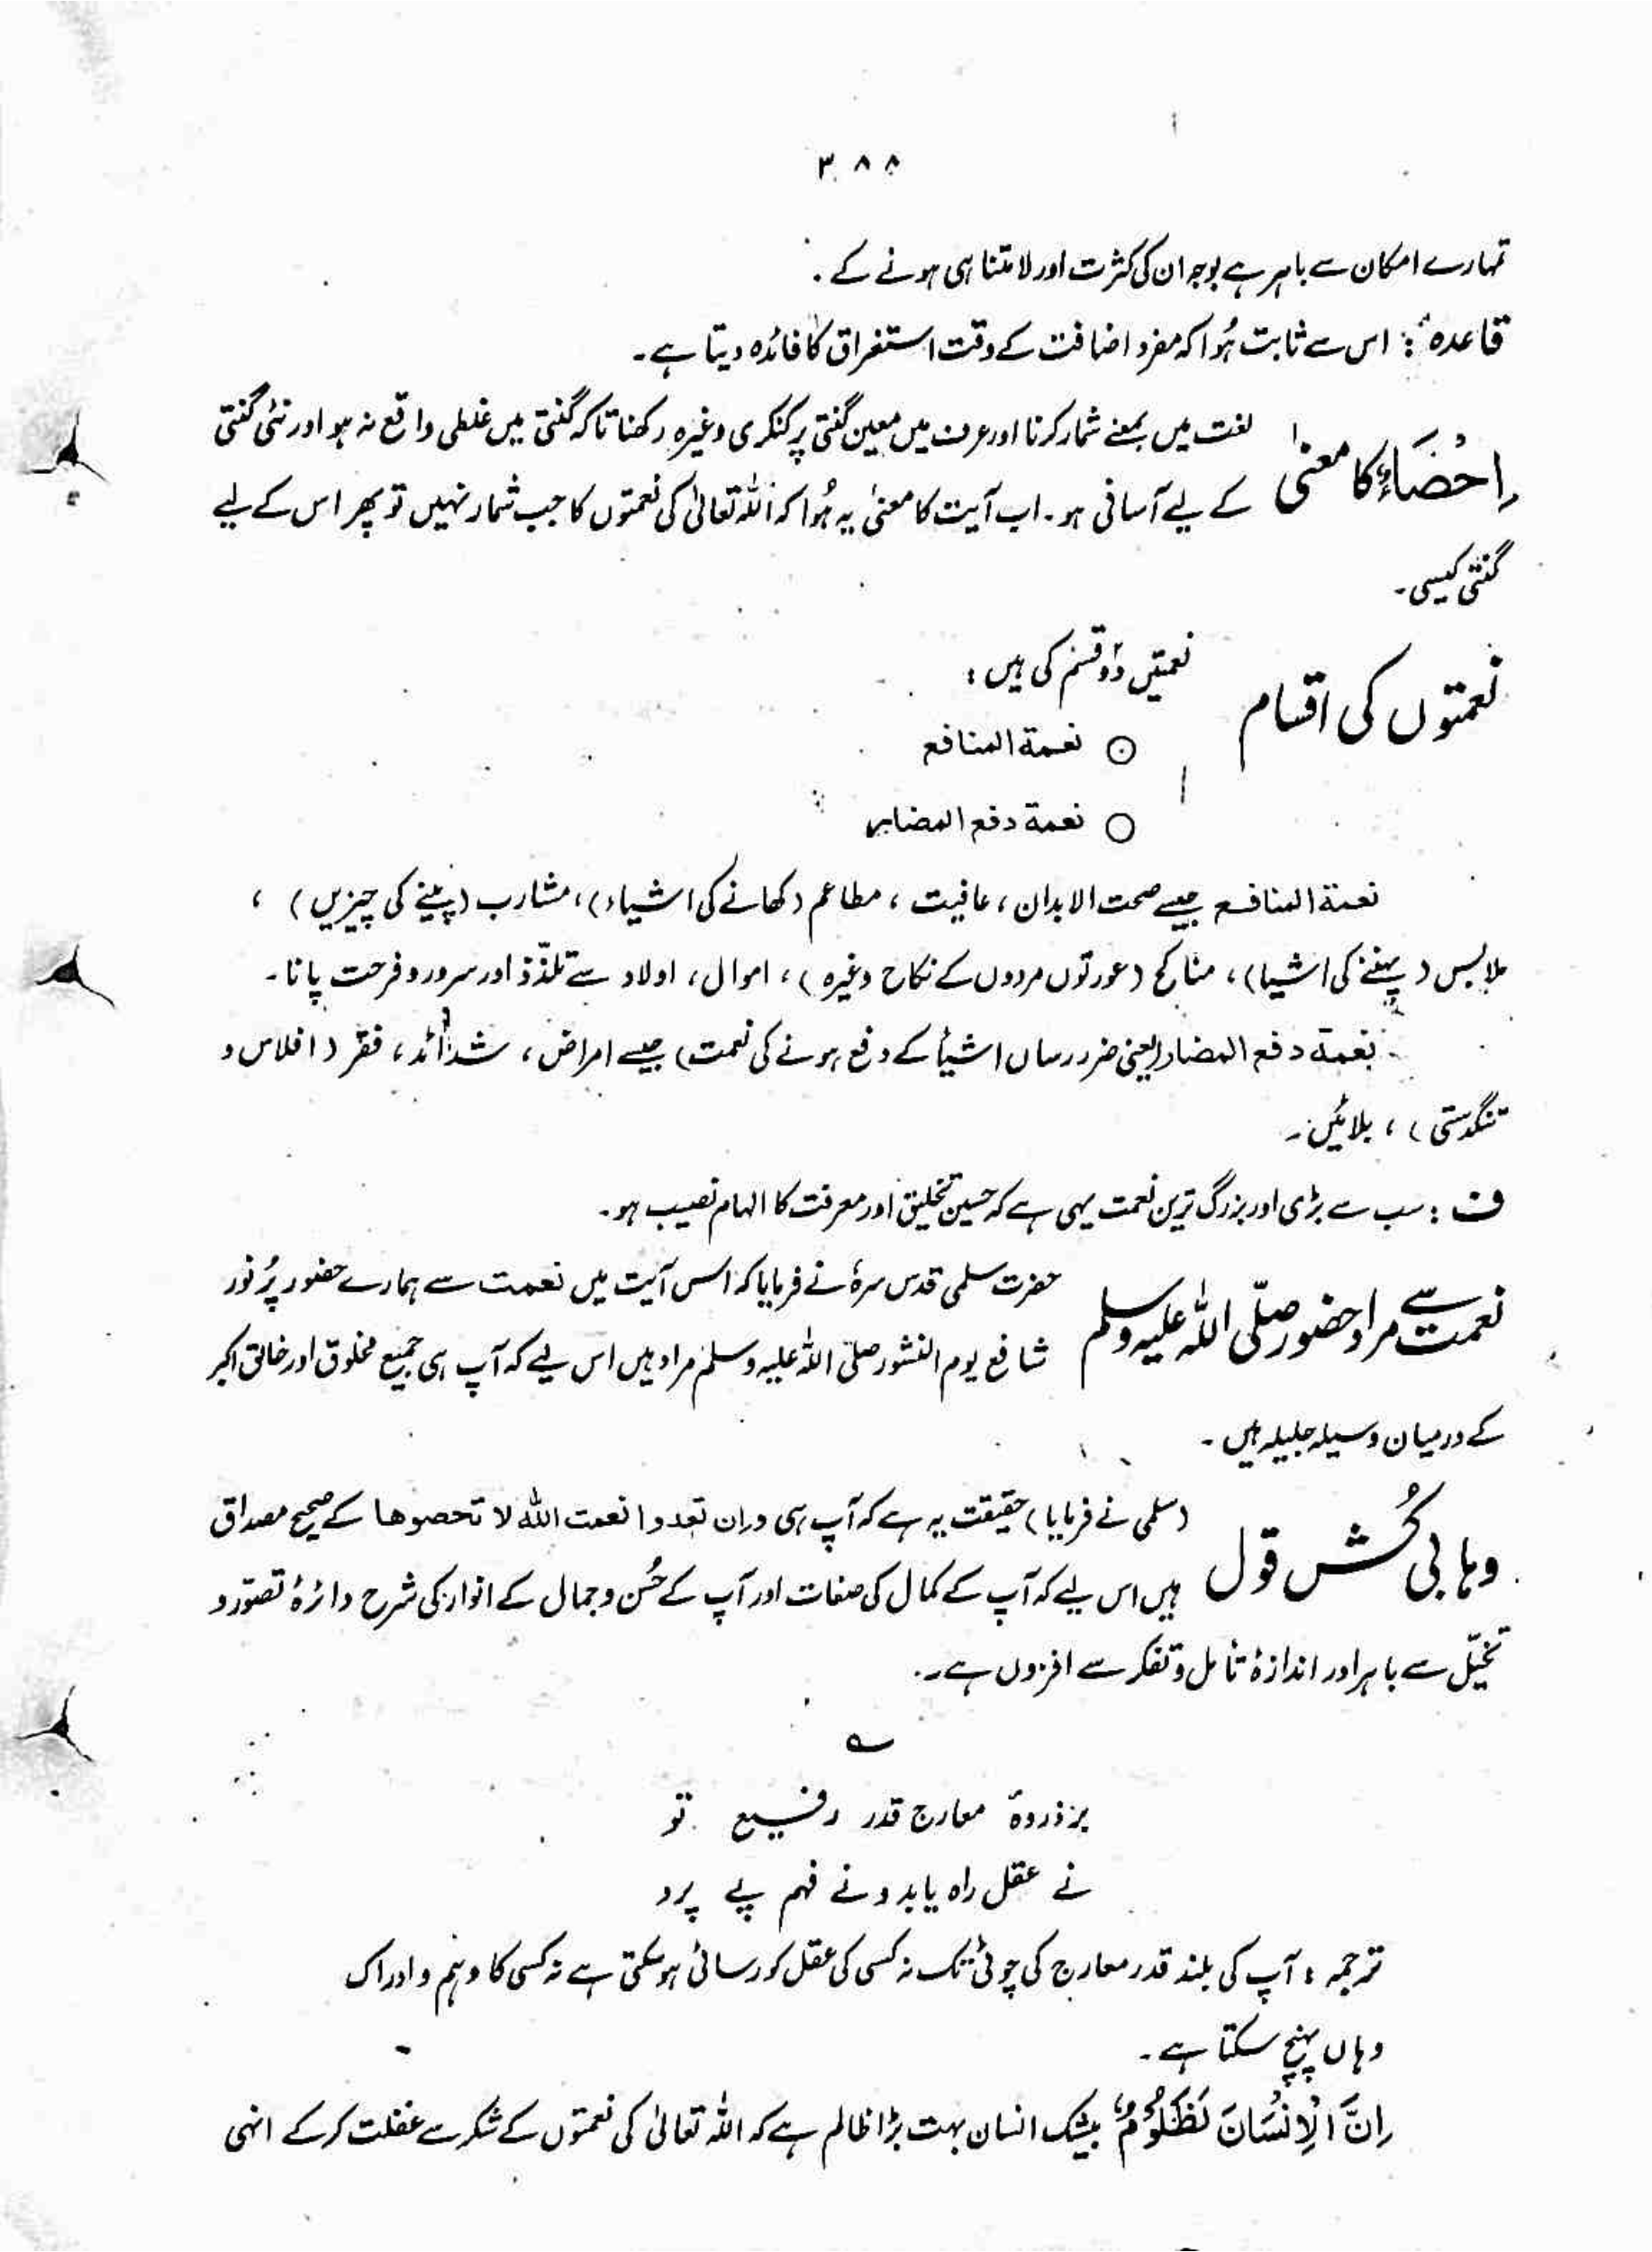 ۳۸۸
تمہارے امکان سے باہر ہے بوجہ ان کی کثرت اور لا متناہی ہونے کے .
قاعدہ : اس سے ثابت ہُوا کہ مفرد اضافت کے وقت استغراق کا فائدہ دیتا ہے۔
اِحْصَاء کا معنیٰ
لغت میں بمعنے شمار کرنا اور عرف میں معین گنتی پر کنکری وغیرہ رکھنا تاکہ گنتی میں غلطی واقع نہ ہو اور نئی گنتی
کے لیے آسانی ہو۔ اب آیت کا معنیٰ یہ ہُوا کہ اللہ تعالیٰ کی نعمتوں کا جب شمار نہیں تو پھر اس کے لیے
گنتی کیسی۔
نعمتوں کی اقسام
نعمتیں دو قسم کی ہیں :
⊙ نعمة المنافع
○ نعمة دفع المضار
نعمة المنافع جیسے صحت الابدان ، عافیت ، مطاعم (کھانے کی اشیاء)، مشارب (پینے کی چیزیں) ،
ملابس (پہننے کی اشیا) ، مناکح (عورتوں مردوں کے نکاح وغیرہ) ، اموال ، اولاد سے تلذّذ اور سرور و فرحت پانا۔
نعمة دفع المضار (یعنی ضرر رساں اشیأ کے دفع ہونے کی نعمت) جیسے امراض ، شدائد ، فقر (افلاس و
تنگدستی) ، بلائیں۔
ف : سب سے بڑی اور بزرگ ترین نعمت یہی ہے کہ حسین تخلیق اور معرفت کا الہام نصیب ہو۔
نعمت سے مراد حضور صلّی اللہ علیہ وسلم
حضرت سلمی قدس سرہٗ نے فرمایا کہ اس آیت میں نعمت سے ہمارے حضور پُرنور
شافع یوم النشور صلی اللہ علیہ وسلم مراد ہیں اس لیے کہ آپ ہی جمیع مخلوق اور خالق اکبر
کے درمیان وسیلہ جلیلہ ہیں ۔
وہابی کُش قول
(سلمی نے فرمایا) حقیقت یہ ہے کہ آپ ہی وران تعدوا نعمت اللہ لا تحصوها کے صحیح مصداق
ہیں اس لیے کہ آپ کے کمال کی صفات اور آپ کے حُسن و جمال کے انوار کی شرح دائرۂ تصوّر و
تخیّل سے باہر اور اندازۂ تأمل و تفکر سے افزوں ہے۔
؎
بر ذروۂ معارج قدر رفیع تو
نے عقل راہ یابد و نے فہم پے پرد
ترجمہ : آپ کی بلند قدر معارج کی چوٹی تک نہ کسی کی عقل کو رسائی ہو سکتی ہے نہ کسی کا وہم و ادراک
وہاں پہنچ سکتا ہے۔
اِنَّ الْاِنْسَانَ لَظَلُوْمٌ بیشک انسان بہت بڑا ظالم ہے کہ اللہ تعالیٰ کی نعمتوں کے شکر سے غفلت کر کے انہی